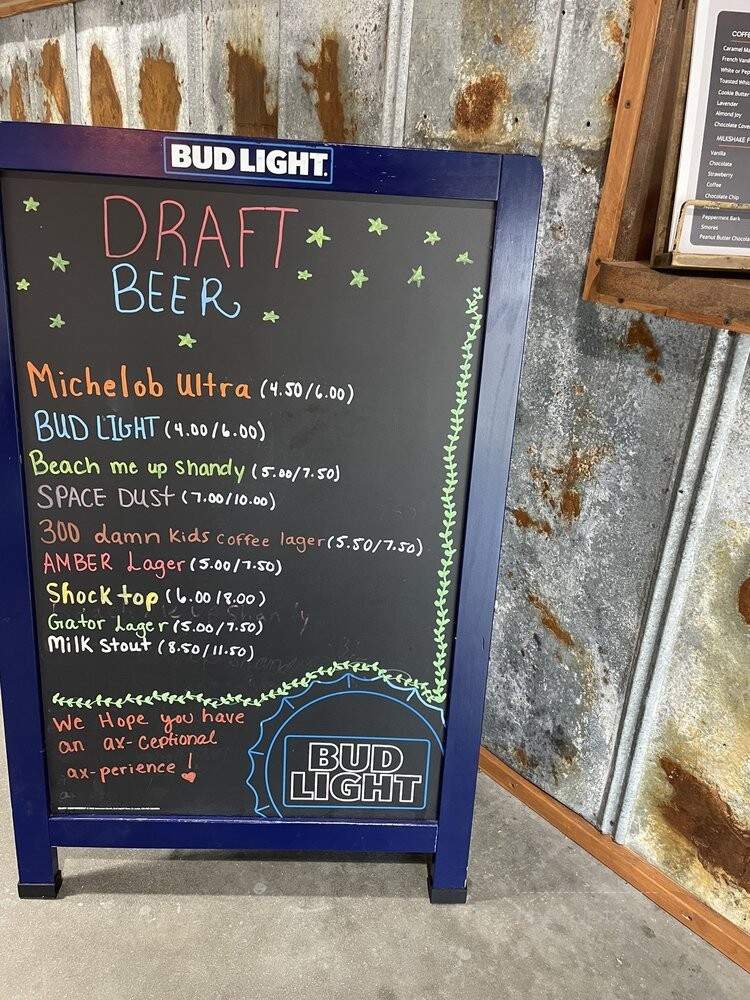 BUD LIGHT.
DRAFT
BEER
Michelob Ultra (4.50/6.00)
BUD LIGHT (4.00/6.00)
Beach me up shandy (5.00/7.50)
SPACE DUST (7.00/10.00)
300 damn kids coffee lager (5.50/7.50)
AMBER Lager (5.00/7.50)
Shock top (6.00/8.00)
Gator Lager (5.00/7.50)
Milk stout (8.50/11.50)
We Hope you have
an ax-ceptional
ax-perience!
BUD
LIGHT
Lavender
Almond Joy
MILKSHAKE
Vanilla
Chocolate
Strawberry
Coffee
Chocolate Chip
Peppermint Bark
Smores
Peanut Butter